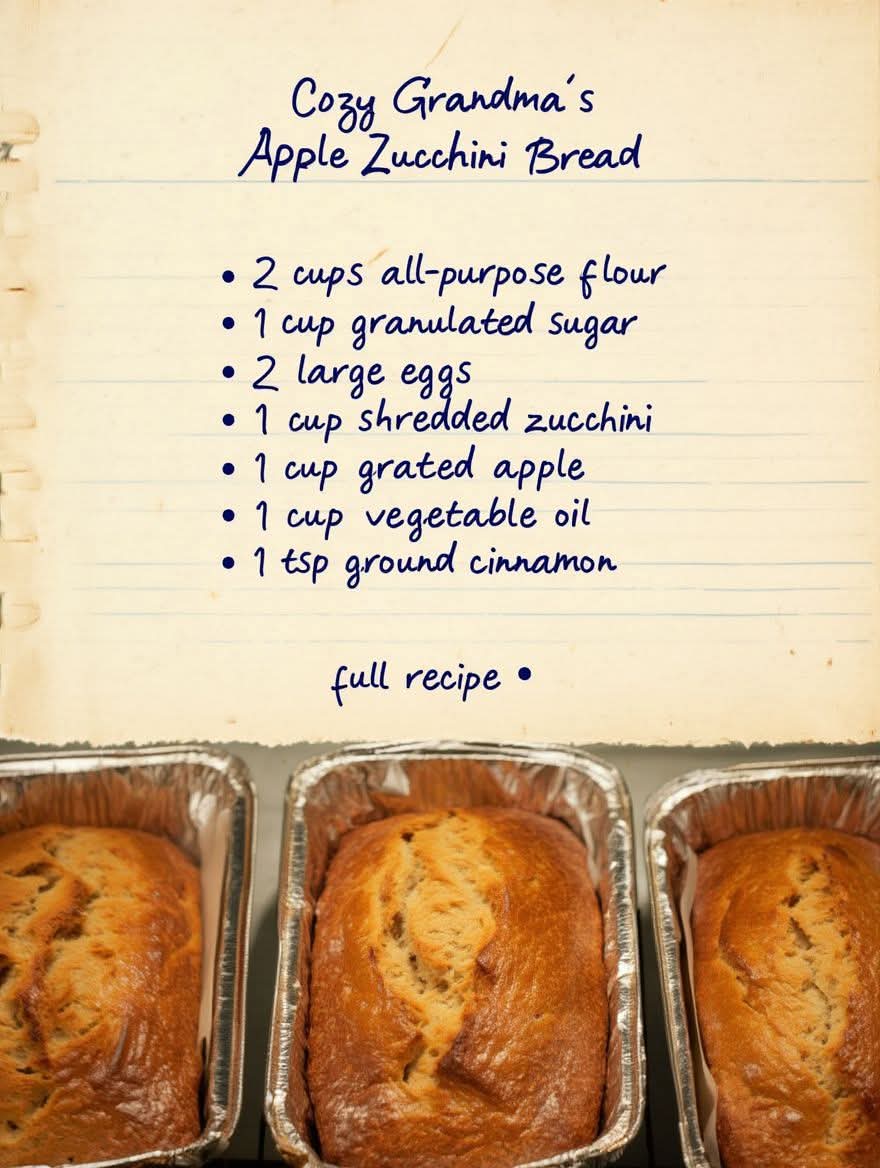 Cozy Grandma's
Apple Zucchini Bread
• 2 cups all-purpose flour
• 1 cup granulated sugar
• 2 large eggs
• 1 cup shredded zucchini
• 1 cup grated apple
• 1 cup vegetable oil
• 1 tsp ground cinnamon
full recipe •